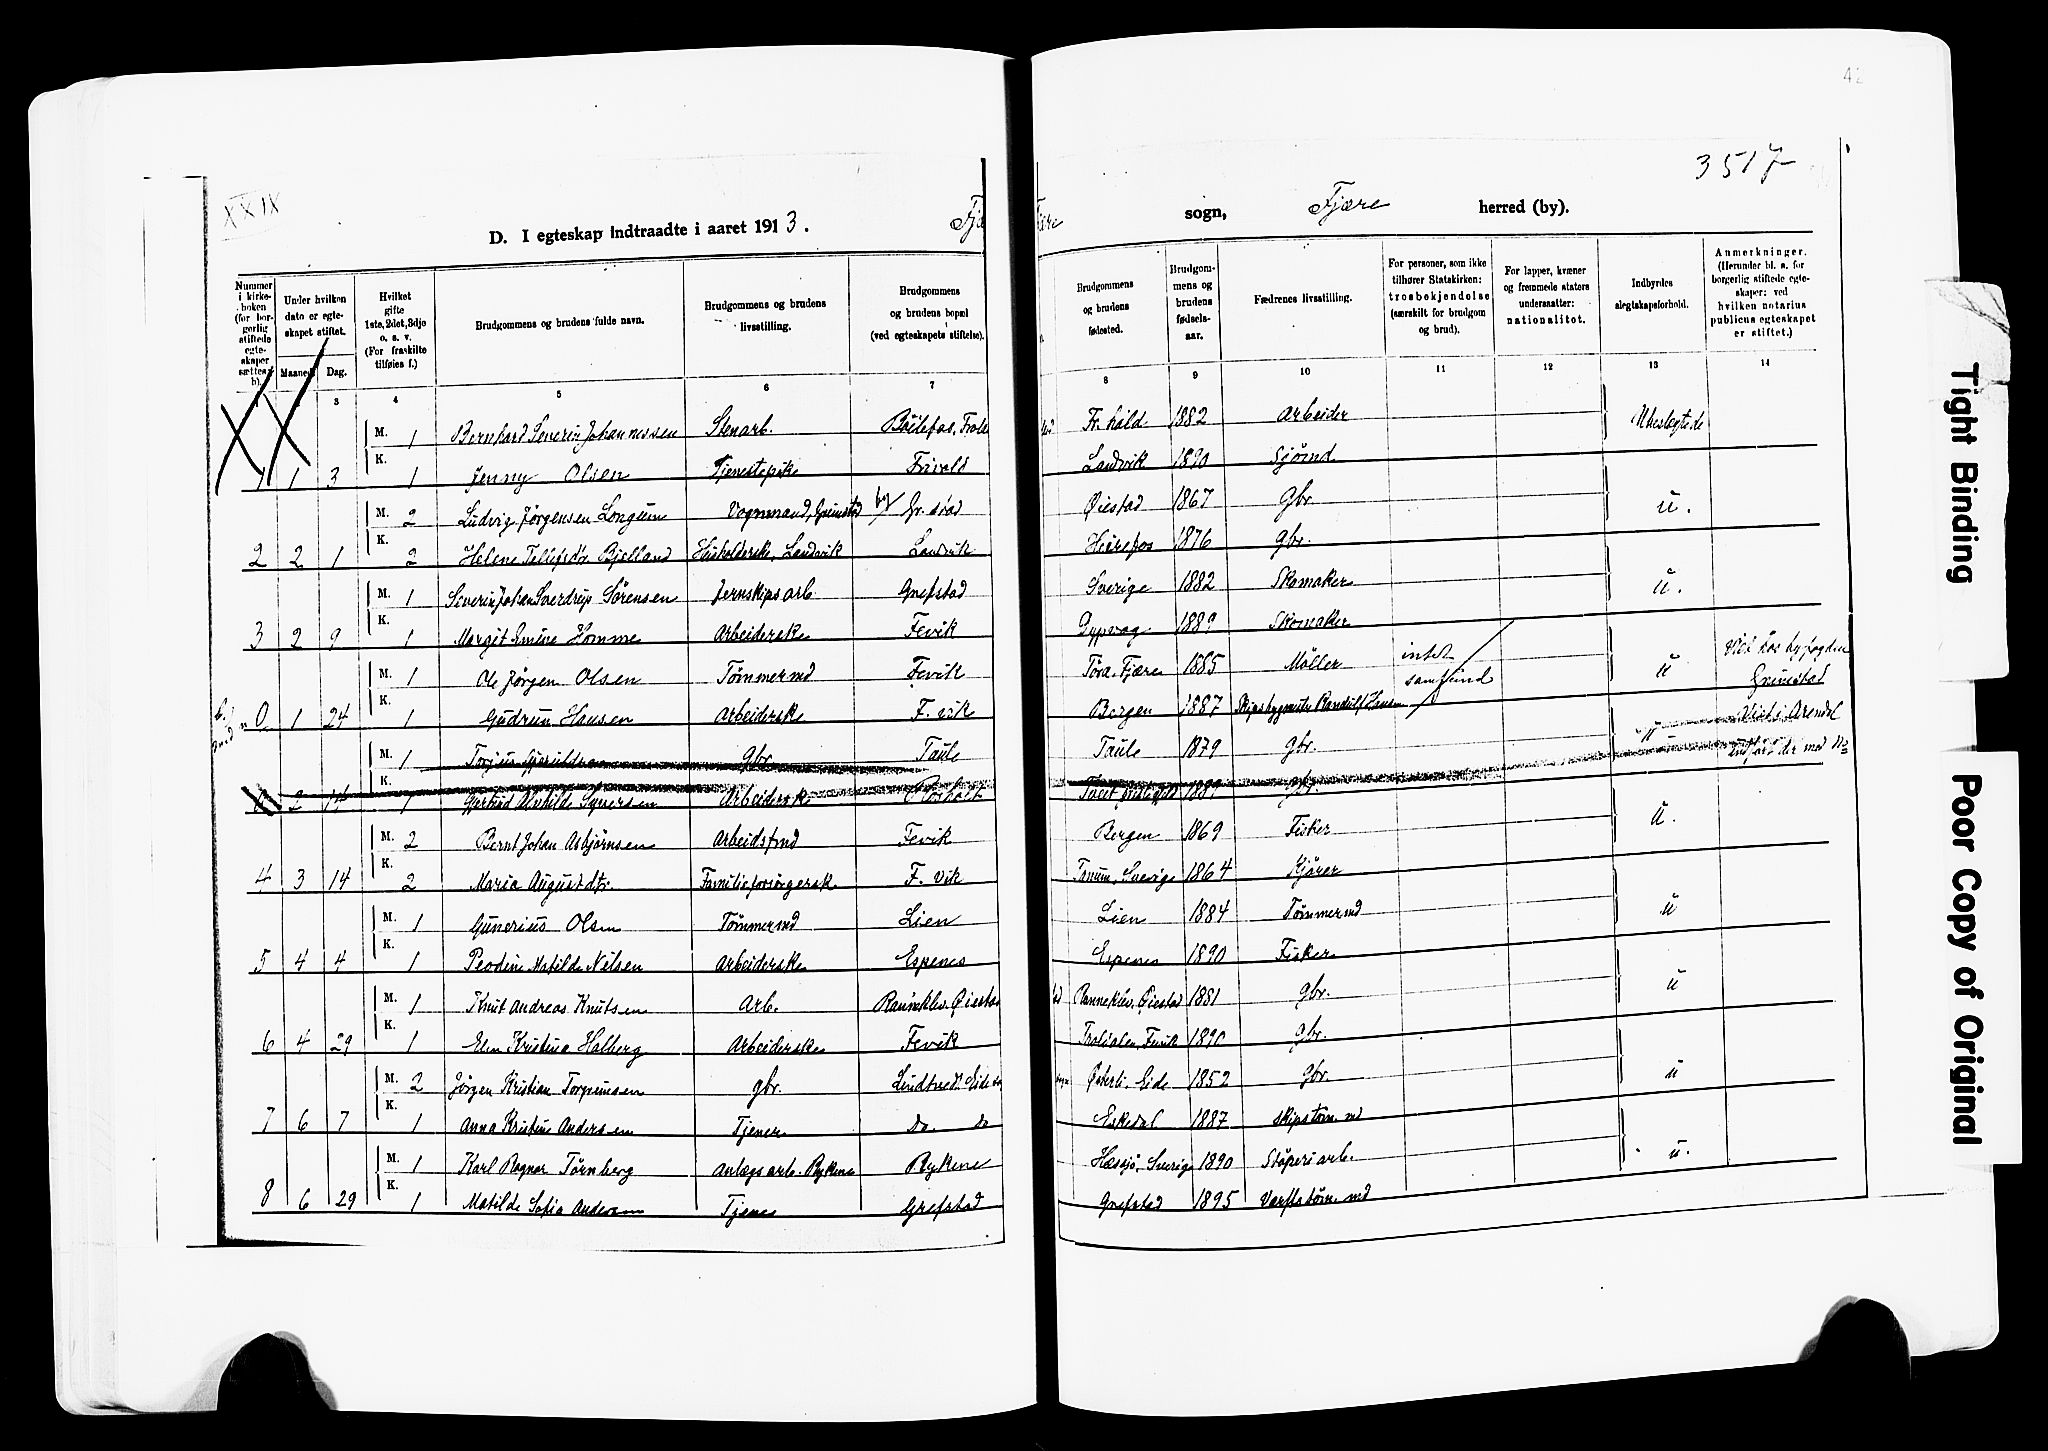 42
3517
XXIX
D. I egteskap indtraadte i aaret 1913. Fjære sogn, Fjære herred (by).
Nummer i kirkeboken (for borgerlig stiftede egteskaper sættes b).
Under hvilken dato er egteskapet stiftet.
Maaned. Dag.
Hvilket gifte 1ste, 2det, 3dje o. s. v. (For fraskilte tilføies f.)
Brudgommens og brudens fulde navn.
Brudgommens og brudens livsstilling.
Brudgommens og brudens bopæl (ved egteskapets stiftelse).
Brudgommens og brudens fødested.
Brudgommens og brudens fødselsaar.
Fædrenes livsstilling.
For personer, som ikke tilhører Statskirken: trosbekjendelse (særskilt for brudgom og brud).
For lapper, kvæner og fremmede staters undersaatter: nationalitet.
Indbyrdes slegtskapsforhold.
Anmerkninger. (Herunder bl. a. for borgerlig stiftede egteskaper: ved hvilken notarius publicus egteskapet er stiftet.)
3 4 5 6 7 8 9 10 11 12 13 14
M. 1 Bernhard Severin Johannessen Stenarb. Fr. hald 1882 Arbeider Ubeslegtede
1 1 3 K. 1 Jenny Olsen Tjenestepike Frivold Landvik 1890 Sjømd
M. 2 Ludvig Jørgensen Longum Vognmand, Grimstad by Gr. stad Øiestad 1867 Gbr. u.
2 2 1 K. 2 Helene Tellefsdtr. Bjelland Husholderske, Landvik Landvik Herefos 1876 Gbr.
M. 1 Severin Johan Sverdrup Sørensen Jernskipsarb. Grefstad Sverige 1882 Skomaker u.
3 2 9 K. 1 Margit Emine Homme Arbeiderske Fevik Dypvag 1889 Skomaker
M. 1 Ole Jørgen Olsen Tømmermd Fevik Fjære 1885 Møller intet samfund u Viet hos byfogden Grimstad
0 1 24 K. 1 Gudrun Hansen Arbeiderske F. vik Bergen 1887 Hansen
M. 1 Torjus Gbr. Taule Taule 1879 Gbr. Viet i Arendal
2 14 K. 1 Gjertrud Alvilde Syversen Arbeiderske 1889 Gbr.
M. 2 Bernt Johan Asbjørnsen Arbeidsfmd Fevik Bergen 1869 Fisker u.
4 3 14 K. 2 Maria Augustdtr. Familieforsørgersk. F. vik Tanum, Sverige 1864 Kjører
M. 1 Gunerius Olsen Tømmermd Lien Lien 1884 Tømmermd u
5 4 4 K. 1 Peodine Matilde Nilsen Arbeiderske Espenes Espenes 1890 Fisker
M. 1 Knut Andreas Knutsen Arb. Rannekleiv, Øiestad Rannekleiv, Øiestad 1881 Gbr. u
6 4 29 K. 1 Elen Kristina Halberg Arbeiderske Fevik Fevik 1890 Gbr.
M. 2 Jørgen Kristian Torgensen Gbr. Lindtved, Eide Østerli, Eide 1852 Gbr. u
7 6 7 K. 1 Anna Kristine Andersen Tjener Do. Do Eskedal 1887 Skipstøm.md
M. 1 Karl Ragnar Törnberg Anlægsarb. Rykene Rykene Hassjö, Sverige 1890 Støperiarb. u.
8 6 29 K. 1 Matilde Sofie Andersen Tjener Grefstad Grefstad 1895 Verftstøm.md
Tight Binding
Poor Copy of Original